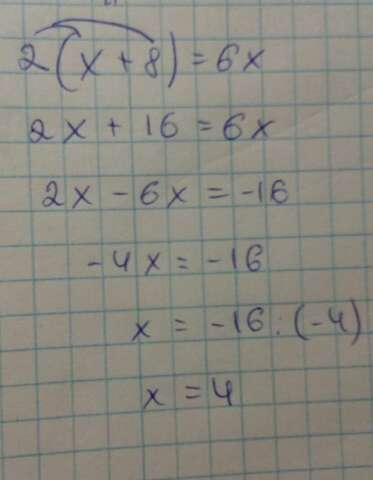 2(x + 8) = 6x
2x + 16 = 6x
2x - 6x = -16
-4x = -16
x = -16 : (-4)
x = 4